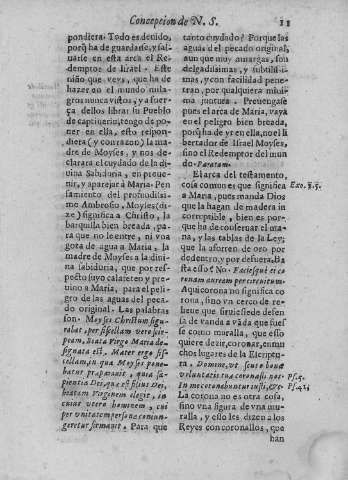 Concepcion de N. S. 11
pondiera. Todo es deuido,
porq̃ ha de guardarse, y sal-
uarse en esta arca el Re-
demptor de Israel. Este
niño que veys, que ha de
hazer en el mundo mila-
gros nunca vistos, y a fuer-
ça dellos librar su Pueblo
de captiuerio, tengo de po-
ner en ella, esto respon-
diera (y con razon) la ma-
dre de Moyses, y nos de-
clarara el cuydado de la di-
uina Sabiduria, en preue-
nir, y aparejar à Maria. Pen
samiento del profundissi-
mo Ambrosio, Moyses (di-
ze) significa a Christo, la
barquilla bien breada, pa-
ra que no le entre, ni vna
gota de agua a Maria, la
madre de Moyses a la diui-
na sabiduria, que por res-
pecto suyo calafeteo y pre-
uino a Maria, para el peli-
gro de las aguas del peca-
do original. Las palabras
son. Moyses Christum figu-
rabat, per fiscellam vero iun-
ceam, Beata Virgo Maria de-
signata est. Mater ergo fis-
cellam, in qua Moyses pone-
batur præparauit, quia sa-
pientia Dei, quæ est filius Dei,
beatam Virginem elegit, in
cuius vtero hominem, cui
per vnitatem personæ coniun-
geretur formauit. Para que
tanto cuydado? Porque las
aguas del pecado original,
aun que muy amargas, son
delgadissimas, y subtilissi-
mas, y con facilidad pene-
tran, por qualquiera mini-
ma juntura. Preuengase
pues el arca de Maria, vaya
en el peligro bien breada,
porq̃ ha de yr en ella, no el li
bertador de Israel Moyses,
sino el Redemptor del mun
do. Paratam.
El arca del testamento,
cosa comun es que significa
a Maria, pues manda Dios
que la hagan de madera in
corruptible, bien es por-
que ha de conseruar el ma-
na, y las tablas de la Ley;
que la aforren de oro por
de dentro, y por defuera. Ba
sta esso? No. Faciesque ei co
ronam auream per circuitum
Aqui corona no significa co
rona, sino vn cerco de re-
lieue que siruiesse de defen
sa de vanda a vãda que fues
se como muralla, que esso
quiere dezir, coronar, en mu
chos lugares de la Escriptu-
ra. Domine, vt scuto bonæ
voluntatis tuæ coronasti nos.
In me coronabuntur iusti, &c.
La corona no es otra cosa,
sino vna figura de vna mu-
ralla, y esso les dizen a los
Reyes con coronallos, que
han
Exo. 25.
Ps. 5.